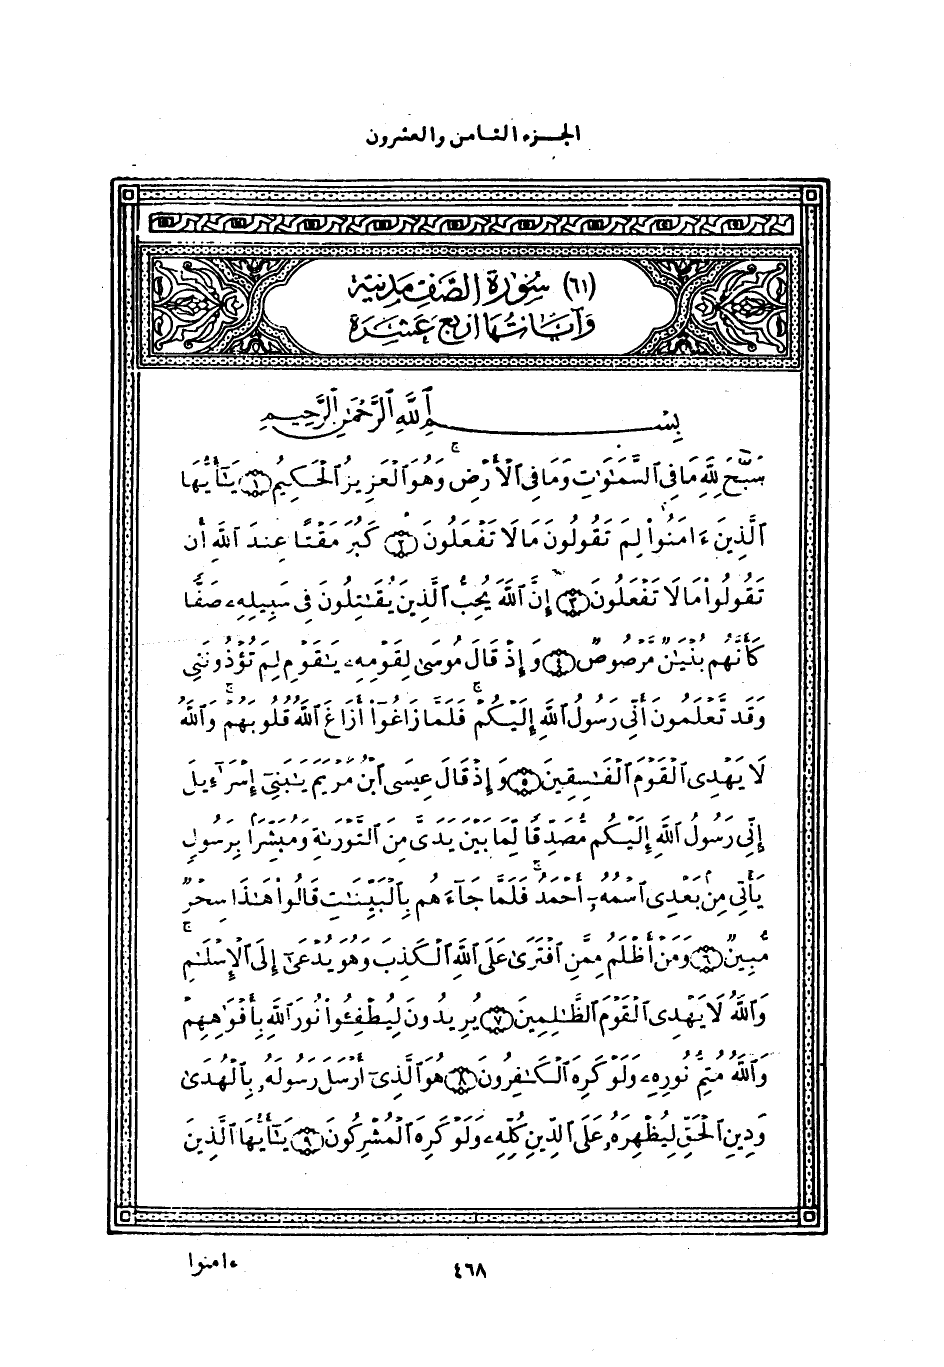 الجزء الثامن والعشرون
(٦١) سُورَة الصَّف مَدنيَّة
وَآيَاتُهَا أربَع عَشرَة
بِسْمِ ٱللَّهِ ٱلرَّحْمَٰنِ ٱلرَّحِيمِ
سَبَّحَ لِلَّهِ مَا فِى ٱلسَّمَٰوَٰتِ وَمَا فِى ٱلْأَرْضِ ۖ وَهُوَ ٱلْعَزِيزُ ٱلْحَكِيمُ ۝١ يَٰٓأَيُّهَا
ٱلَّذِينَ ءَامَنُوا۟ لِمَ تَقُولُونَ مَا لَا تَفْعَلُونَ ۝٢ كَبُرَ مَقْتًا عِندَ ٱللَّهِ أَن
تَقُولُوا۟ مَا لَا تَفْعَلُونَ ۝٣ إِنَّ ٱللَّهَ يُحِبُّ ٱلَّذِينَ يُقَٰتِلُونَ فِى سَبِيلِهِۦ صَفًّا
كَأَنَّهُم بُنْيَٰنٌ مَّرْصُوصٌ ۝٤ وَإِذْ قَالَ مُوسَىٰ لِقَوْمِهِۦ يَٰقَوْمِ لِمَ تُؤْذُونَنِى
وَقَد تَّعْلَمُونَ أَنِّى رَسُولُ ٱللَّهِ إِلَيْكُمْ ۖ فَلَمَّا زَاغُوٓا۟ أَزَاغَ ٱللَّهُ قُلُوبَهُمْ ۚ وَٱللَّهُ
لَا يَهْدِى ٱلْقَوْمَ ٱلْفَٰسِقِينَ ۝٥ وَإِذْ قَالَ عِيسَى ٱبْنُ مَرْيَمَ يَٰبَنِىٓ إِسْرَٰٓءِيلَ
إِنِّى رَسُولُ ٱللَّهِ إِلَيْكُم مُّصَدِّقًا لِّمَا بَيْنَ يَدَىَّ مِنَ ٱلتَّوْرَىٰةِ وَمُبَشِّرًۢا بِرَسُولٍ
يَأْتِى مِنۢ بَعْدِى ٱسْمُهُۥٓ أَحْمَدُ ۖ فَلَمَّا جَآءَهُم بِٱلْبَيِّنَٰتِ قَالُوا۟ هَٰذَا سِحْرٌ
مُّبِينٌ ۝٦ وَمَنْ أَظْلَمُ مِمَّنِ ٱفْتَرَىٰ عَلَى ٱللَّهِ ٱلْكَذِبَ وَهُوَ يُدْعَىٰٓ إِلَى ٱلْإِسْلَٰمِ ۚ
وَٱللَّهُ لَا يَهْدِى ٱلْقَوْمَ ٱلظَّٰلِمِينَ ۝٧ يُرِيدُونَ لِيُطْفِـُٔوا۟ نُورَ ٱللَّهِ بِأَفْوَٰهِهِمْ
وَٱللَّهُ مُتِمُّ نُورِهِۦ وَلَوْ كَرِهَ ٱلْكَٰفِرُونَ ۝٨ هُوَ ٱلَّذِىٓ أَرْسَلَ رَسُولَهُۥ بِٱلْهُدَىٰ
وَدِينِ ٱلْحَقِّ لِيُظْهِرَهُۥ عَلَى ٱلدِّينِ كُلِّهِۦ وَلَوْ كَرِهَ ٱلْمُشْرِكُونَ ۝٩ يَٰٓأَيُّهَا ٱلَّذِينَ
ءامنوا
٤٦٨